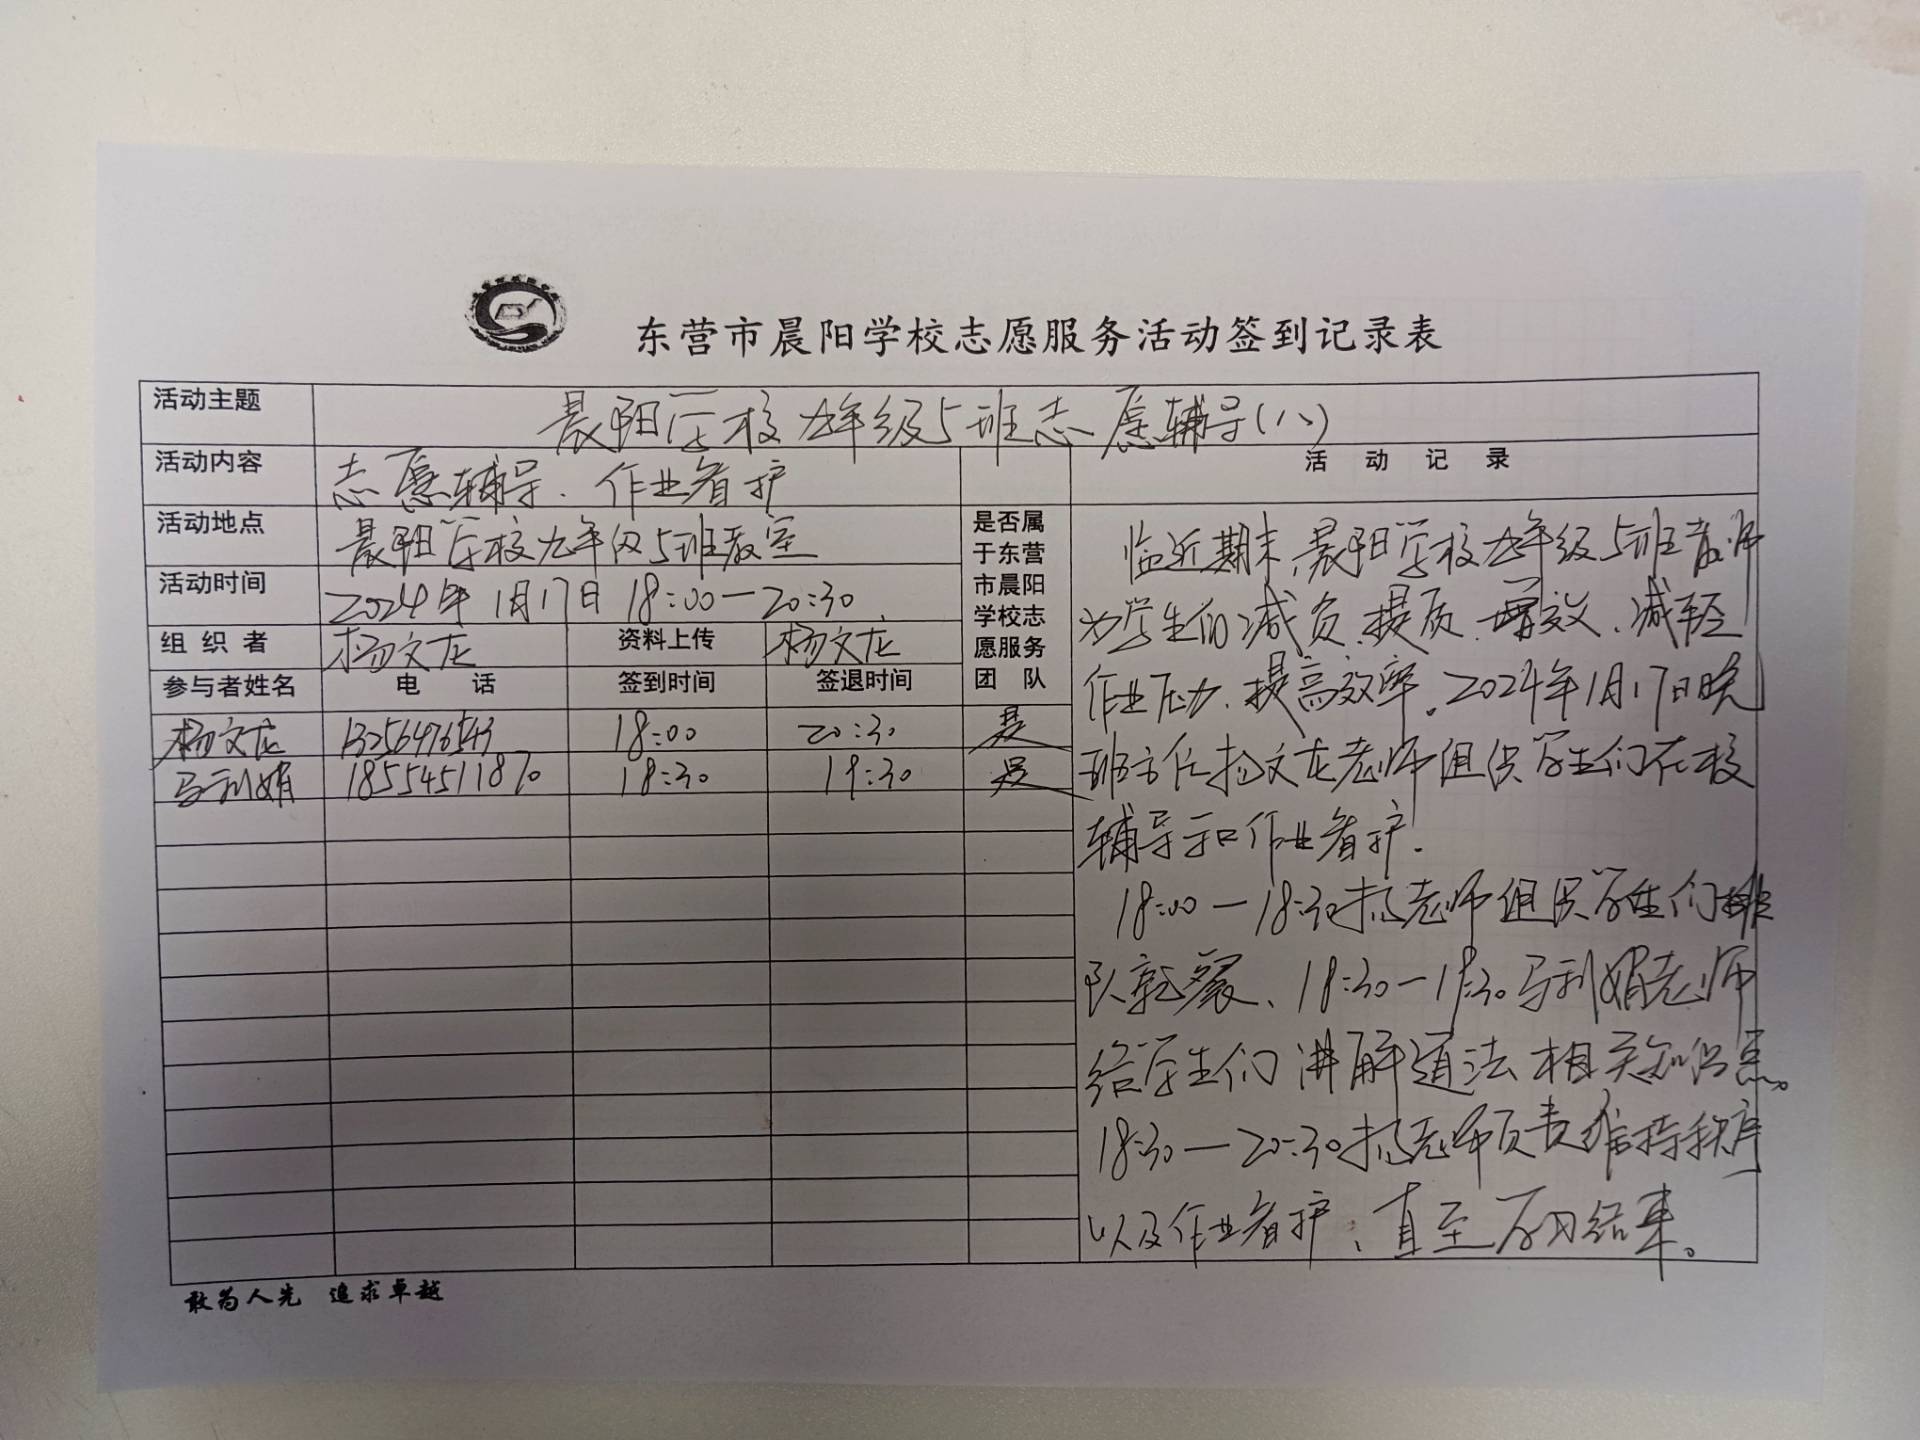 东营市晨阳学校志愿服务活动签到记录表
活动主题 晨阳学校九年级5班志愿辅导(八)
活动内容 志愿辅导、作业看护
活动地点 晨阳学校九年级5班教室
活动时间 2024年1月17日 18:00—20:30
组织者 杨文龙 资料上传 杨文龙
参与者姓名 电话 签到时间 签退时间
是否属
于东营
市晨阳
学校志
愿服务
团队
杨文龙 13256476543 18:00 20:30 是
马利娟 18554511870 18:30 19:30 是
活动记录
临近期末,晨阳学校九年级5班教师
为学生们减负、提质、增效、减轻
作业压力、提高效率。2024年1月17日晚
班主任杨文龙老师组织学生们在校
辅导和作业看护.
18:00—18:30杨老师组织学生们排
队就餐、18:30—19:30马利娟老师
给学生们讲解道法相关知识点。
18:30—20:30杨老师负责维持秩序
以及作业看护,直至学习结束。
敢为人先 追求卓越